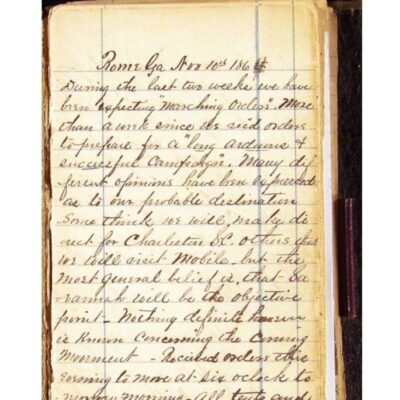 Rome Ga Nov 10th 1864
During the last two weeks we have
been "expecting" "Marching Orders". More
than a week since we rec'd orders
to prepare for a "long arduous &
successful Campaign". Many dif-
ferent opinions have been expressed
as to our probable destination
Some think we will make di-
rect for Charleston S.C. others that
we will visit Mobile - but the
most general belief is, that Sa-
vannah will be the objective
point - Nothing definite however
is Known Concerning the Coming
Movement - Recieved orders this
evening to move at six oclock to-
morrow morning - All tents and